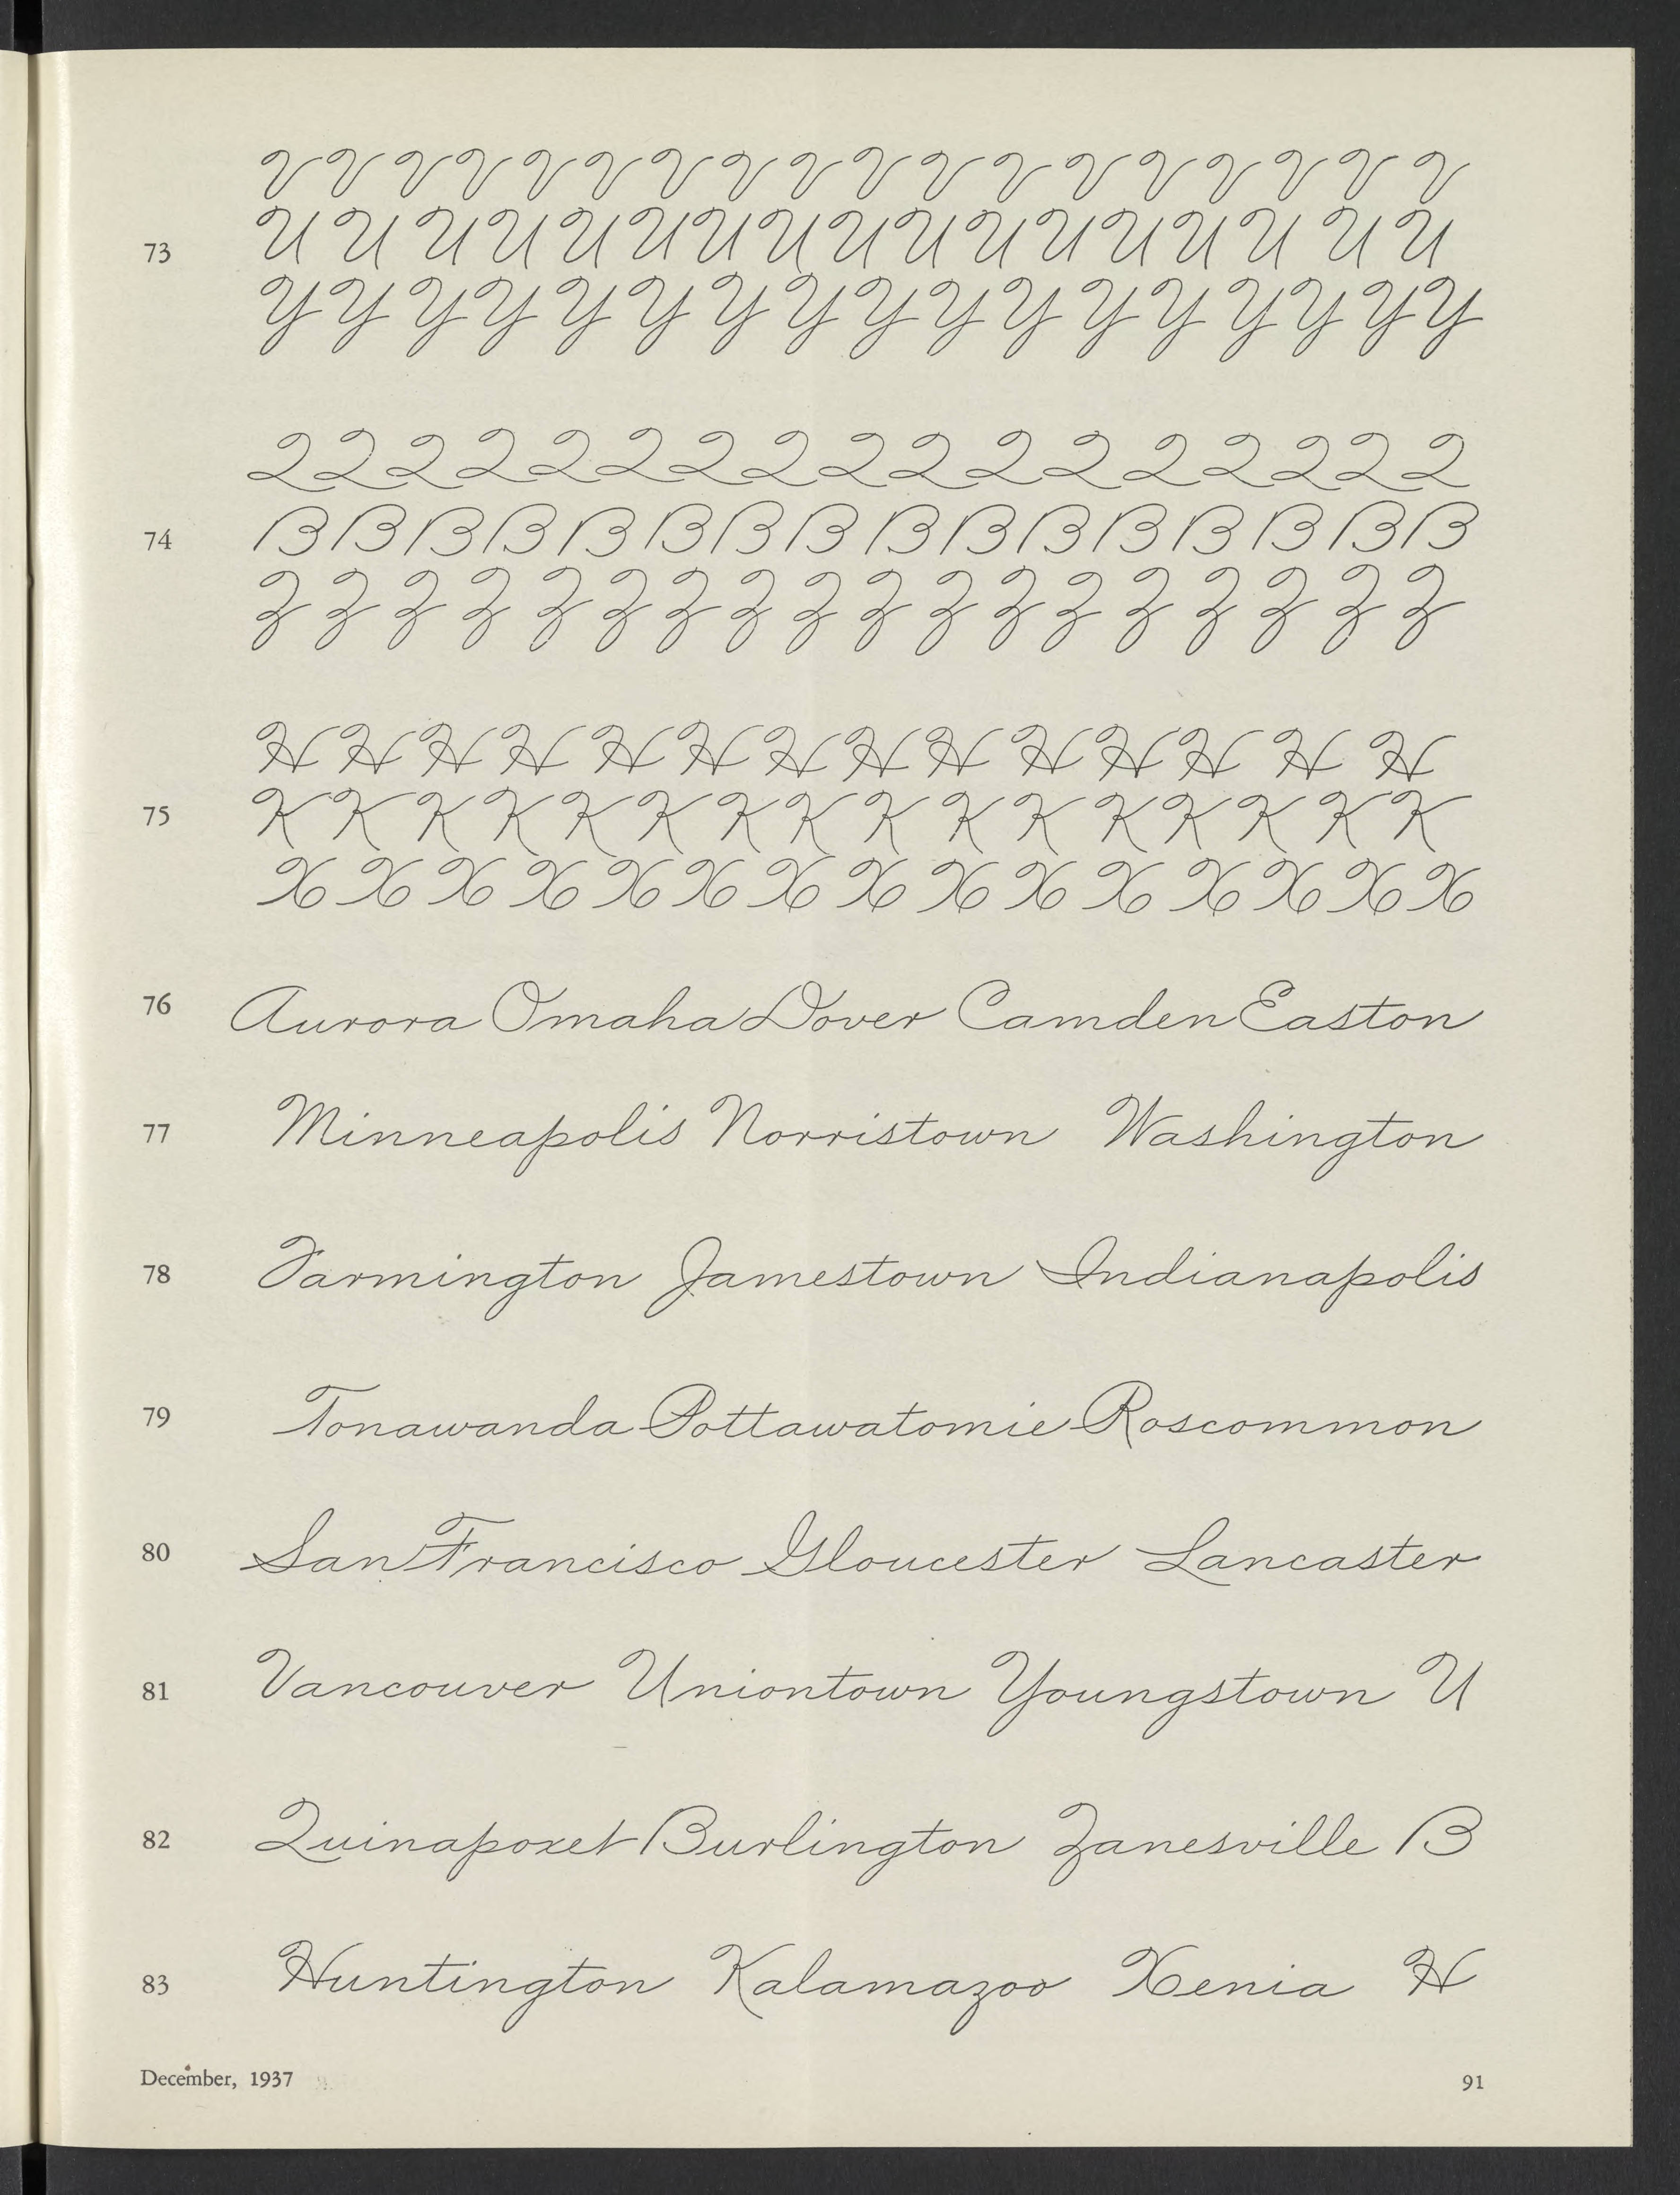 V V V V V V V V V V V V V V V V V V
73 U U U U U U U U U U U U U U U U U
Y Y Y Y Y Y Y Y Y Y Y Y Y Y Y Y Y
Q Q Q Q Q Q Q Q Q Q Q Q Q Q Q Q Q
74 B B B B B B B B B B B B B B B B
Z Z Z Z Z Z Z Z Z Z Z Z Z Z Z Z Z Z
H H H H H H H H H H H H H H
75 K K K K K K K K K K K K K K K K
X X X X X X X X X X X X X X X
76 Aurora Omaha Dover Camden Easton
77 Minneapolis Norristown Washington
78 Farmington Jamestown Indianapolis
79 Tonawanda Pottawatomie Roscommon
80 San Francisco Gloucester Lancaster
81 Vancouver Uniontown Youngstown U
82 Quinapoxet Burlington Zanesville B
83 Huntington Kalamazoo Xenia H
December, 1937 91